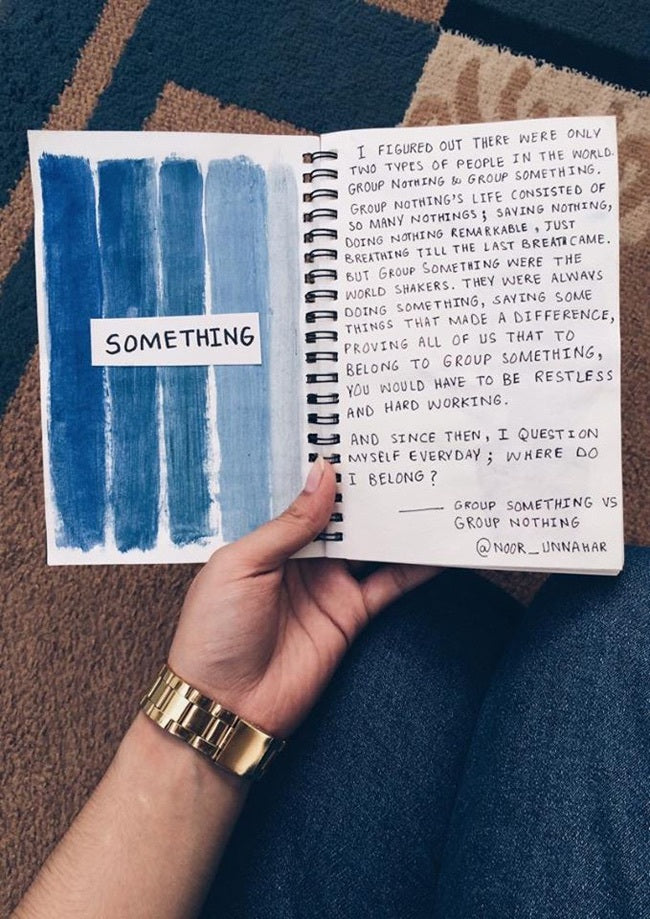 SOMETHING
I FIGURED OUT THERE WERE ONLY
TWO TYPES OF PEOPLE IN THE WORLD.
GROUP NOTHING & GROUP SOMETHING.
GROUP NOTHING'S LIFE CONSISTED OF
SO MANY NOTHINGS; SAYING NOTHING,
DOING NOTHING REMARKABLE, JUST
BREATHING TILL THE LAST BREATH CAME.
BUT GROUP SOMETHING WERE THE
WORLD SHAKERS. THEY WERE ALWAYS
DOING SOMETHING, SAYING SOME
THINGS THAT MADE A DIFFERENCE,
PROVING ALL OF US THAT TO
BELONG TO GROUP SOMETHING,
YOU WOULD HAVE TO BE RESTLESS
AND HARD WORKING.
AND SINCE THEN, I QUESTION
MYSELF EVERYDAY; WHERE DO
I BELONG?
— GROUP SOMETHING VS
GROUP NOTHING
@NOOR_UNNAHAR